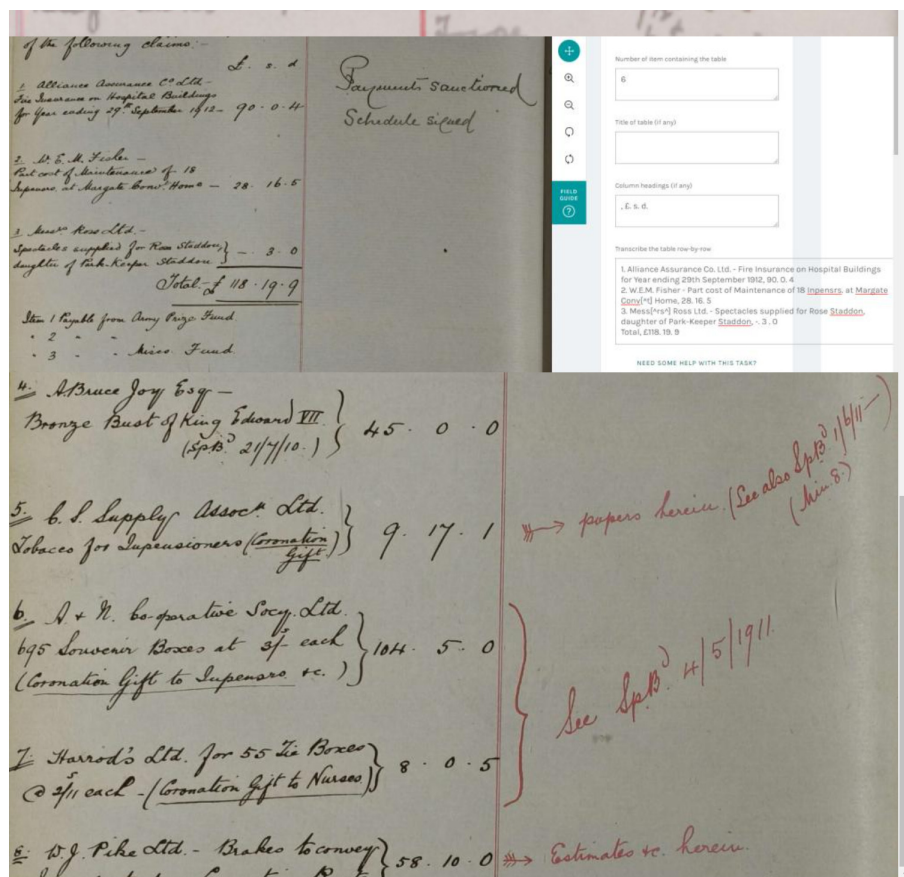 of the following claims:-
£. s. d
1. Alliance Assurance Co Ltd-
Fire Insurance on Hospital Buildings
for Year ending 29th September 1912 - 90. 0. 4
2. W. E. M. Fisher -
Part cost of Maintenance of 18
Inpensrs. at Margate Convt Home - 28. 16. 5
3. Messrs Ross Ltd. -
Spectacles supplied for Rose Staddon,
daughter of Park-Keeper Staddon } -. 3. 0
Total - £ 118. 19. 9
Item 1 Payable from Army Prize Fund
" 2 " "
" 3 " " Misco. Fund
Payments sanctioned
Schedule signed
FIELD
GUIDE
Number of item containing the table
6
Title of table (if any)
Column headings (if any)
, £. s. d.
Transcribe the table row-by-row
1. Alliance Assurance Co. Ltd. - Fire Insurance on Hospital Buildings
for Year ending 29th September 1912, 90. 0. 4
2. W.E.M. Fisher - Part cost of Maintenance of 18 Inpensrs. at Margate
Cony[^t] Home, 28. 16. 5
3. Mess[^rs^] Ross Ltd. - Spectacles supplied for Rose Staddon,
daughter of Park-Keeper Staddon, -. 3 . 0
Total, £118. 19. 9
NEED SOME HELP WITH THIS TASK?
4. A Bruce Joy Esq -
Bronze Bust of King Edward VII } 45. 0. 0
(Sp. Bd 21/7/10.)
5. C. S. Supply Assocn. Ltd.
Tobacco for Inpensioners (Coronation Gift) } 9. 17. 1
papers herein. (See also Sp. Bd 1/6/11 -
(Min. 8.)
6. A & N. Co-operative Socy. Ltd.
695 Souvenir Boxes at 3/- each } 104. 5. 0
(Coronation Gift to Inpensrs. &c.)
See Sp. Bd 4/5/1911.
7. Harrod's Ltd. for 55 Tie Boxes
@ 2/11 each - (Coronation Gift to Nurses) } 8. 0. 5
8. W. J. Pike Ltd. - Brakes to convey } 58. 10. 0
Estimates &c. herein.